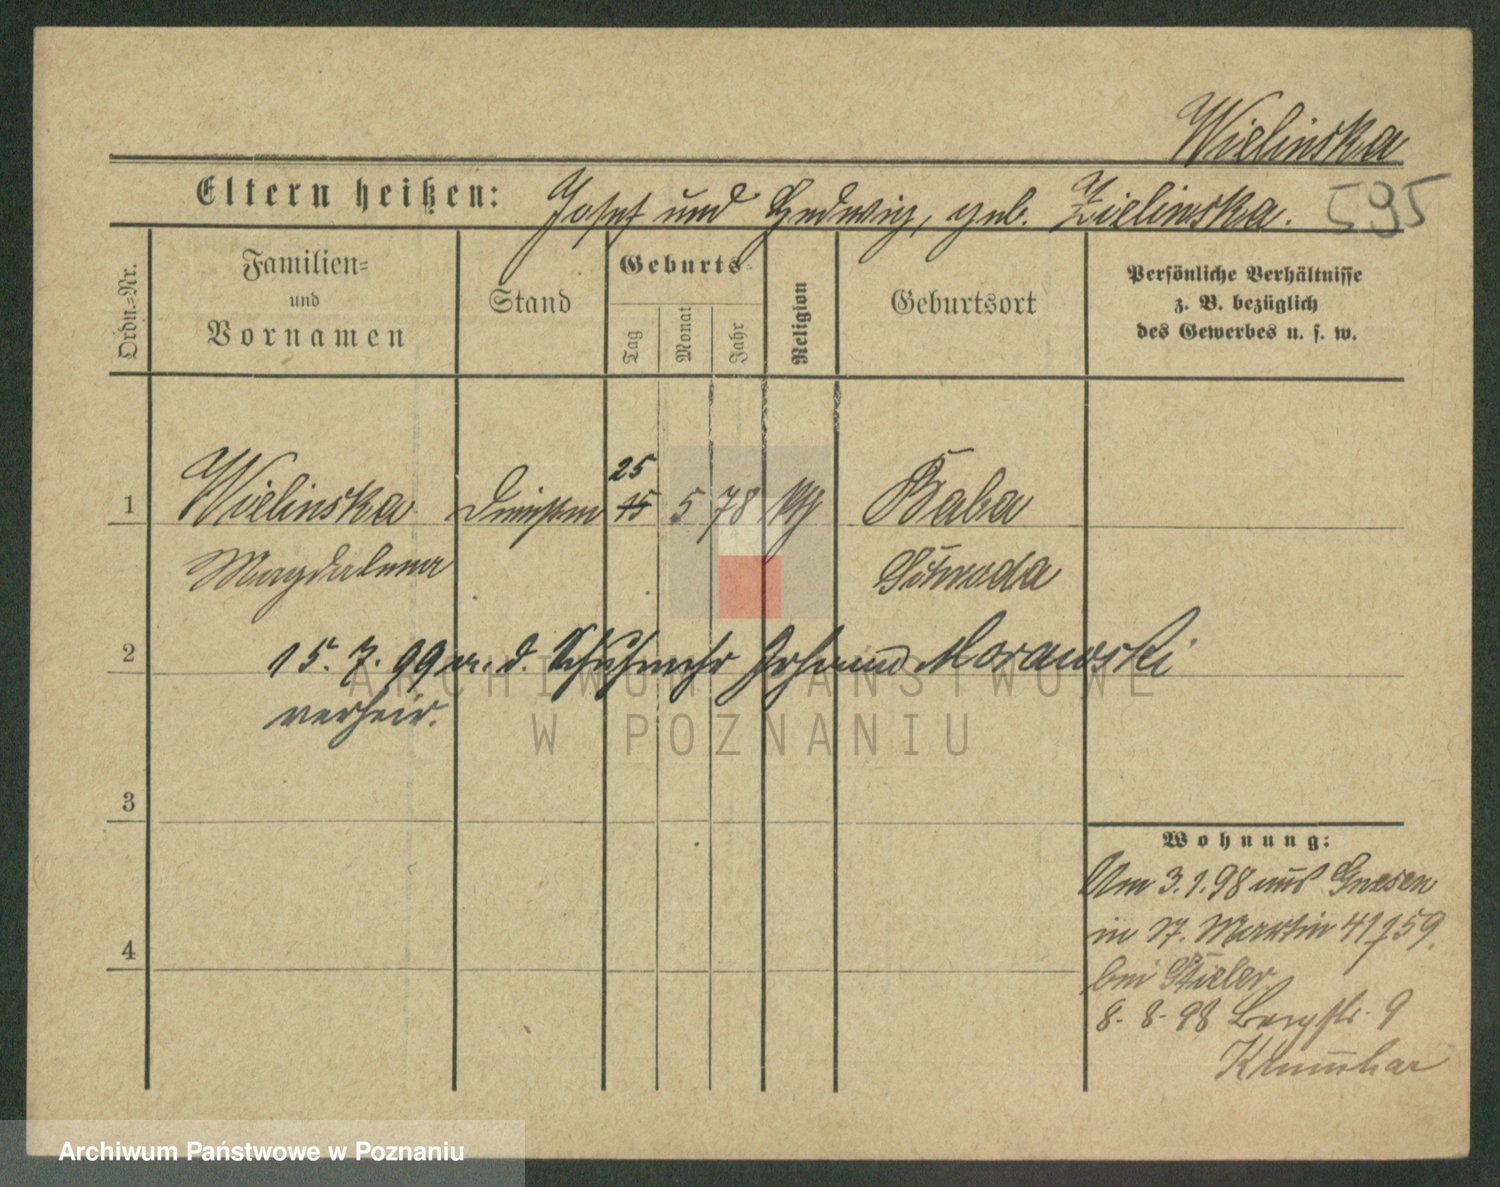 Wielinska
Eltern heißen: Josef und Hedwig, geb. Zielinska. 595
Ordn.=Nr.
Familien=
und
Vornamen
Stand
Geburts=
Tag
Monat
Jahr
Religion
Geburtsort
Persönliche Verhältnisse
z. B. bezüglich
des Gewerbes u. s. w.
1 Wielinska 25 15 5 78 Baba
Magdalena Schroda
2 15. 7. 99 m. d. Johann Morawski
verheir.
3
4
ARCHIWUM PAŃSTWOWE
W POZNANIU
Wohnung:
Am 3.1.98 aus Gnesen
in 17. Martin 41 159.
bei Stieler
8. 8. 98 Bergstr. 9
Archiwum Państwowe w Poznaniu